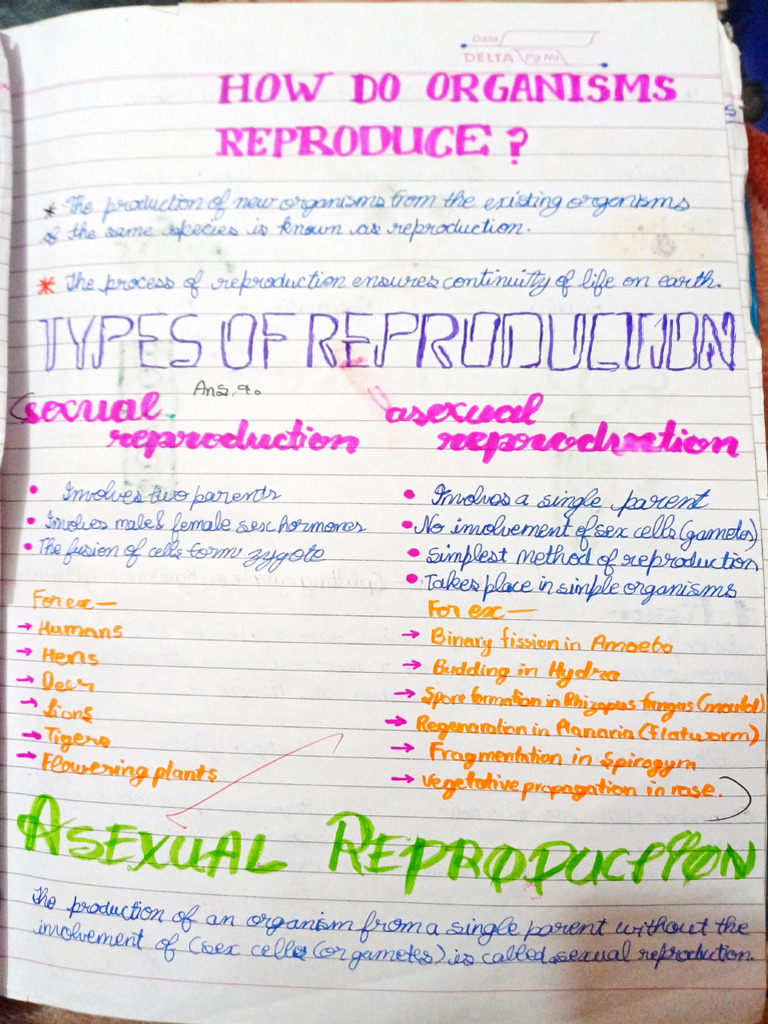 Date
DELTA Pg No
HOW DO ORGANISMS
REPRODUCE?
* The production of new organisms from the existing organisms
of the same species is known as reproduction.
* The process of reproduction ensures continuity of life on earth.
TYPES OF REPRODUCTION
Ans. 9.
(sexual
reproduction
• Involves two parents
• Involves male & female sex hormones
• The fusion of cells form zygote
For ex —
→ Humans
→ Hens
→ Deer
→ Lions
→ Tigers
→ Flowering plants
asexual
reproduction
• Involves a single parent
• No involvement of sex cells (gametes)
• Simplest method of reproduction
• Takes place in simple organisms
For ex —
→ Binary fission in Amoeba
→ Budding in Hydra
→ Spore formation in Rhizopus fungus (mould)
→ Regeneration in Planaria (flatworm)
→ Fragmentation in Spirogyra
→ vegetative propagation in rose.)
ASEXUAL REPRODUCTION
The production of an organism from a single parent without the
involvement of (sex cells (or gametes) is called asexual reproduction.